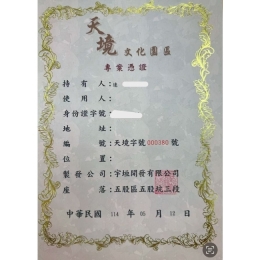 天境文化園區
專業憑證
持有人：
使用人：
身份證字號：
地址：
編號：天境字號000380號
位置：
製發公司：宇垣開發有限公司
座落：五股區五股坑三段
中華民國 114 年 05 月 日